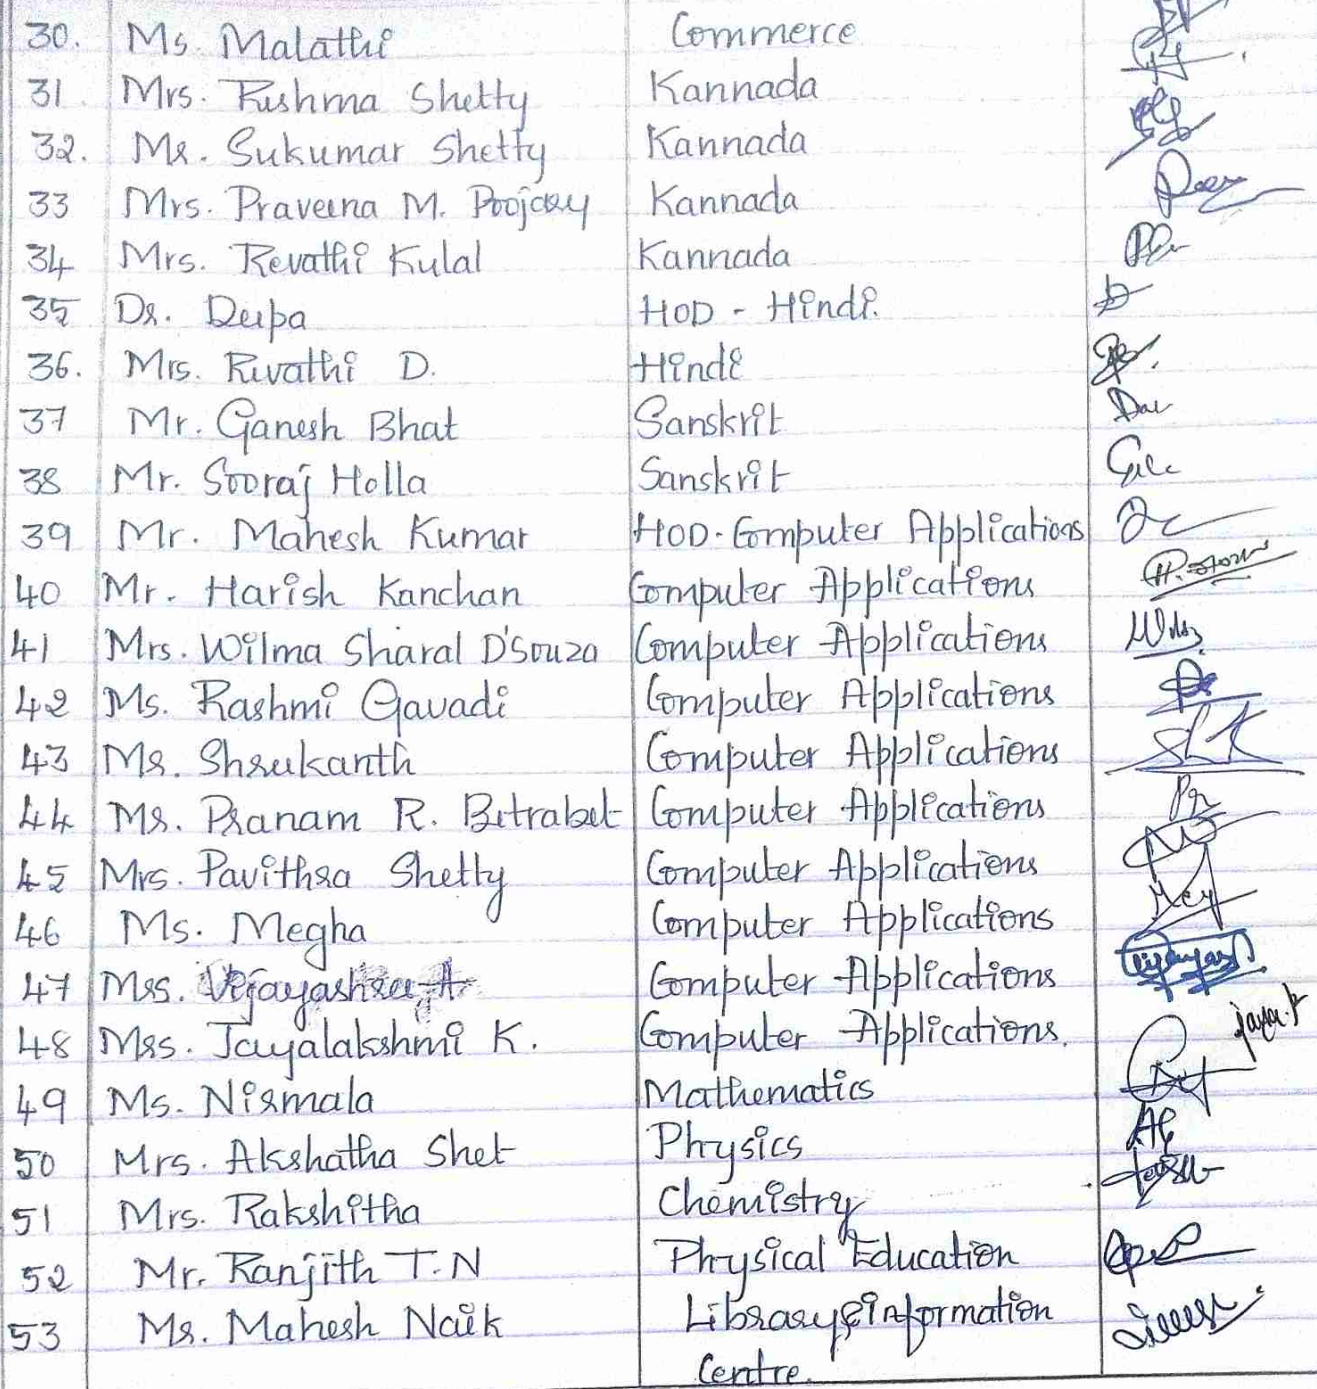 30. Ms. Malathi Commerce
31. Mrs. Reshma Shetty Kannada
32. Mr. Sukumar Shetty Kannada
33 Mrs. Praveena M. Poojary Kannada
34 Mrs. Revathi Kulal Kannada
35 Dr. Deepa HOD - Hindi.
36. Mrs. Revathi D. Hindi
37 Mr. Ganesh Bhat Sanskrit
38 Mr. Sooraj Holla Sanskrit
39 Mr. Mahesh Kumar HOD. Computer Applications
40 Mr. Harish Kanchan Computer Applications
41 Mrs. Wilma Sharal D'Souza Computer Applications
42 Ms. Rashmi Gavadi Computer Applications
43 Mr. Shreekanth Computer Applications
44 Mr. Pranam R. Betrabet Computer Applications
45 Mrs. Pavithra Shetty Computer Applications
46 Ms. Megha Computer Applications
47 Mrs. Vijayashree A Computer Applications
48 Mrs. Jayalakshmi K. Computer Applications.
49 Ms. Nirmala Mathematics
50 Mrs. Akshatha Shet Physics
51 Mrs. Rakshitha Chemistry
52 Mr. Ranjith T.N Physical Education
53 Mr. Mahesh Naik Library & information
Centre.